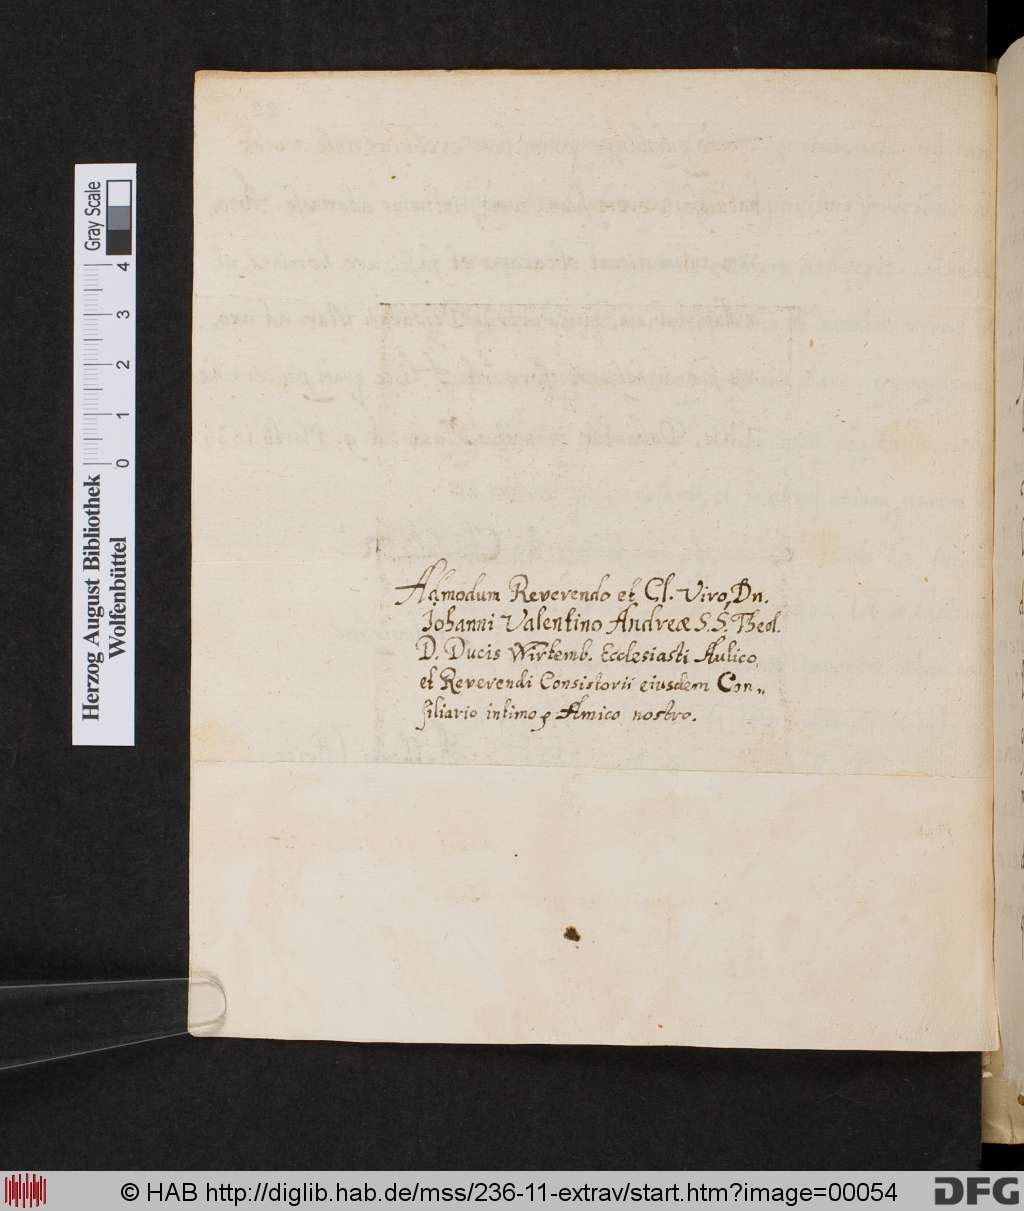 Gray Scale
0 1 2 3 4
Herzog August Bibliothek
Wolfenbüttel
Admodum Reverendo et Cl. Viro, Dn.
Johanni Valentino Andreæ S.S. Theol.
D. Ducis Wirtemb. Ecclesiasti Aulico,
et Reverendi Consistorii eiusdem Con„
siliario intimo, Amico nostro.
© HAB http://diglib.hab.de/mss/236-11-extrav/start.htm?image=00054
DFG